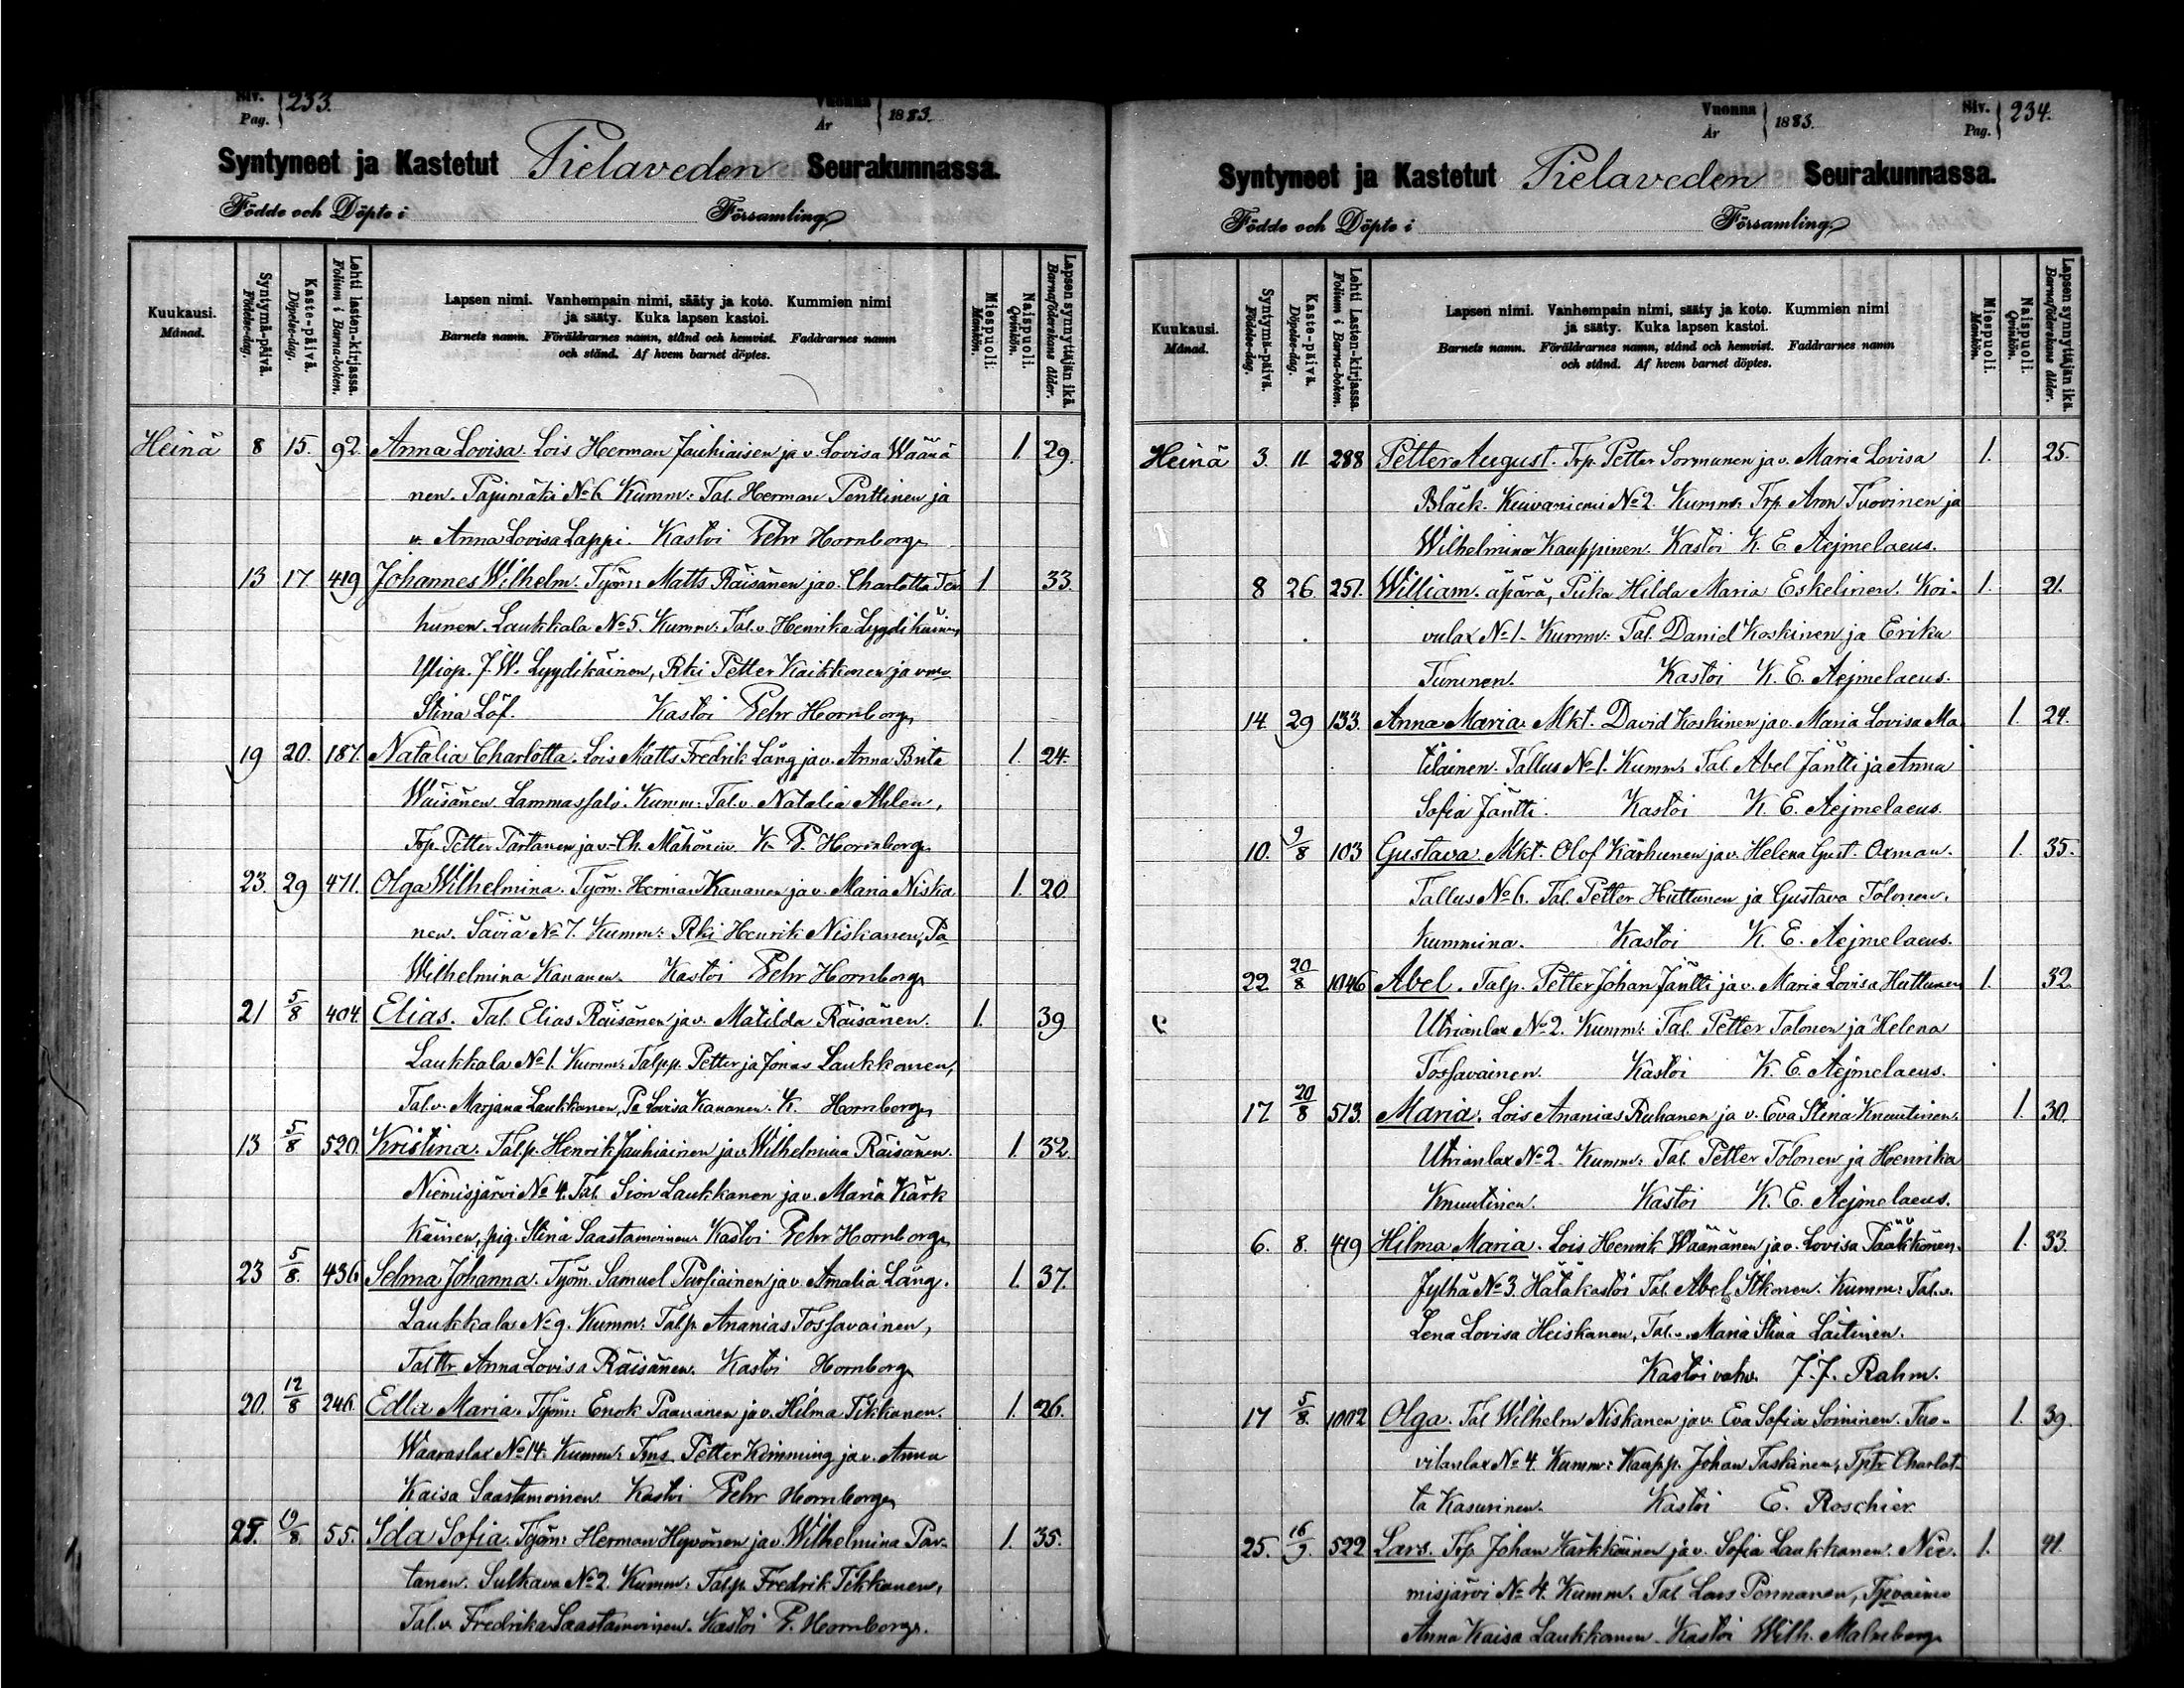 Siv. Pag. 233. Vuonna År 1883.
Syntyneet ja Kastetut Pielaveden Seurakunnassa.
Födde och Döpte i Församling
Kuukausi. Månad.
Syntymä-päivä. Födelse-dag.
Kaste-päivä. Döpelse-dag.
Lehti lasten-kirjassa. Folium i Barna-boken.
Lapsen nimi. Vanhempain nimi, sääty ja koto. Kummien nimi
ja sääty. Kuka lapsen kastoi.
Barnets namn. Föräldrarnes namn, stånd och hemvist. Faddrarnes namn
och stånd. Af hvem barnet döptes.
Miespuoli. Mankön.
Naispuoli. Qvinkön.
Lapsen synnyttäjän ikä. Barnaföderskans ålder.
Heinä 8 15. 92. Anna Lovisa. Lois Herman Jauhiaisen ja v. Lovisa Wäänä 1. 29.
nen. Pajumäki No 6 Kumm: Tal. Herman Penttinen ja
v. Anna Lovisa Lappi. Kastoi Pehr Hornborg
13 17. 419 Johannes Wilhelm. Työm: Matts Räisänen ja v. Charlotta Ter 1 33.
hunen. Laukkala No 5. Kumm: Tal. v. Henrika Lyydikäinen,
Yliop. J. W. Lyydikäinen, Rki Petter Kaikkonen ja vmo
Stina Löf. Kastoi Pehr Hornborg
19 20. 187. Natalia Charlotta. Lois Matts Fredrik Läng ja v. Anna Brita 1. 24.
Wäisänen Lammassalo. Kumm: Tal. v. Natalia Ahlen,
Trp. Petter Partanen ja v. Ch. Mähönen. K. P. Hornborg
23. 29 471. Olga Wilhelmina. Työm. Herman Kananen ja v. Maria Niska 1. 20
nen. Säviä No 7. Kumm: Rki Henrik Niskanen, Pa
Wilhelmina Kananen. Kastoi Pehr Hornborg
21 5/8 404. Elias. Tal. Elias Räisänen ja v. Matilda Räisänen. 1. 39
Laukkala No 1. Kumm: Talpp. Petter ja Jonas Laukkanen,
Tal. v. Marjana Laukkanen, Pa Lovisa Kananen. K. Hornborg
13 5/8 520. Kristina. Talp. Henrik Jauhiainen ja v. Wilhelmina Räisänen. 1. 32.
Niemisjärvi No 4. Tal. Sion Laukkanen ja v. Maria Kärk
käinen, pig. Stina Saastamoinen. Kastoi Pehr Hornborg
23 5/8. 436 Selma Johanna. Työm. Samuel Pursiainen ja v. Amalia Läng. 1. 37.
Laukkala No 9. Kumm: Talp. Ananias Tossavainen,
Tal ttr Anna Lovisa Räisänen. Kastoi Hornborg
20. 12/8 246. Edla Maria. Työm: Enok Paananen ja v. Hilma Tikkanen. 1. 26.
Waaraslax No 14. Kumm: Tms Petter Kimming ja v. Anna
Kaisa Saastamoinen Kastoi Pehr Hornborg
25. 19/8. 55. Ida Sofia. Työm: Herman Hyvönen ja v. Wilhelmina Par- 1. 35.
tanen. Sulkava No 2. Kumm: Talp. Fredrik Tikkanen,
Tal. v. Fredrika Saastamoinen. Kastoi P. Hornborg.
Vuonna År 1883. Siv. Pag. 234.
Syntyneet ja Kastetut Pielaveden Seurakunnassa.
Födde och Döpte i Församling
Kuukausi. Månad.
Syntymä-päivä. Födelse-dag.
Kaste-päivä. Döpelse-dag.
Lehti Lasten-kirjassa. Folium i Barna-boken.
Lapsen nimi. Vanhempain nimi, sääty ja koto. Kummien nimi
ja sääty. Kuka lapsen kastoi.
Barnets namn. Föräldrarnes namn, stånd och hemvist. Faddrarnes namn
och stånd. Af hvem barnet döptes.
Miespuoli. Mankön.
Naispuoli. Qvinkön.
Lapsen synnyttäjän ikä. Barnaföderskans ålder.
Heinä 3. 11. 288 Petter August. Trp. Petter Sormunen ja v. Maria Lovisa 1. 25.
Bläck. Kuivaniemi No 2. Kumm: Trp. Aron Tuovinen ja
Wilhelmina Kauppinen. Kastoi K. E. Aejmelaeus.
8 26. 251. William. äpärä, Piika Hilda Maria Eskelinen. Koi- 1. 21.
vulax No 1. Kumm: Tal. Daniel Koskinen ja Erika
Turunen. Kastoi K. E. Aejmelaeus.
14. 29 133. Anna Maria. Mkt. David Koskinen ja v. Maria Lovisa Ma 1. 24.
tilainen. Tallus No 1. Kumm: Tal. Abel Jäntti ja Anna
Sofia Jäntti. Kastoi K. E. Aejmelaeus.
10. 9/8 103 Gustava. Mkt. Olof Kärhunen ja v. Helena Gust. Oxman. 1. 35.
Tallus No 6. Tal. Petter Huttunen ja Gustava Tolonen.
Kummina. Kastoi K. E. Aejmelaeus.
22. 20/8. 1046 Abel. Talp. Petter Johan Jäntti ja v. Maria Lovisa Huttunen 1. 32.
Utrianlax No 2. Kumm: Tal. Petter Tolonen ja Helena
Tossavainen. Kastoi K. E. Aejmelaeus.
17 20/8 513. Maria. Lois Ananias Ruhanen ja v. Eva Stina Knuutinen. 1. 30.
Utrianlax No 2. Kumm: Tal. Petter Tolonen ja Henrika
Knuutinen. Kastoi K. E. Aejmelaeus.
6. 8. 419 Hilma Maria. Lois Henrik Wäänänen ja v. Lovisa Tääkkönen. 1. 33.
Jylhä No 3. Hätäkastoi Tal. Abel Itkonen. Kumm: Tal. v.
Lena Lovisa Heiskanen, Tal. v. Maria Stina Laitinen.
Kastoi vahv. J. J. Rahm.
17 5/8. 1002 Olga. Tal Wilhelm Niskanen ja v. Eva Sofia Soininen. Tuo- 1. 39.
vilanlax No 4. Kumm: Kaupp. Johan Taskinen, Tptr Charlot-
ta Kasurinen. Kastoi E. Roschier
25. 16/9. 522 Lars. Trp. Johan Kärkkäinen ja v. Sofia Laukkanen. Nie- 1. 41.
misjärvi No 4. Kumm. Tal. Lars Pennanen, Tpvaimo
Anna Kaisa Laukkanen. Kastoi Wilh. Malmberg